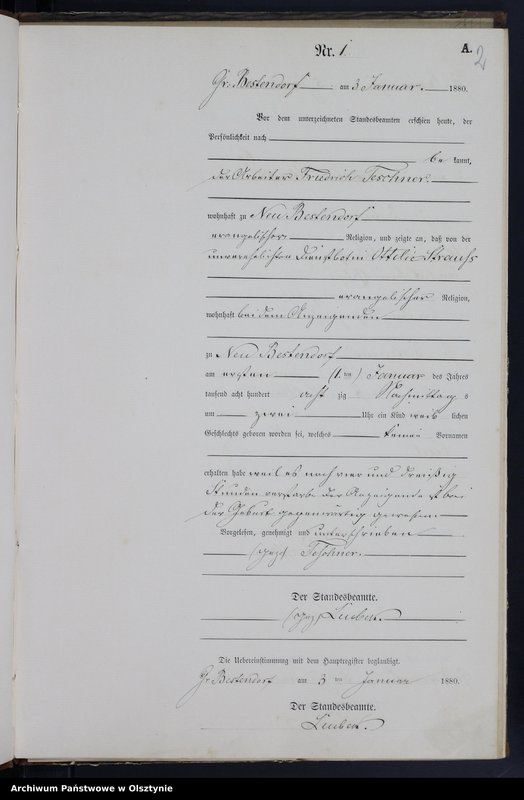 Nr. 1
A.
2
Gr. Bestendorf am 3 Januar 1880.
Vor dem unterzeichneten Standesbeamten erschien heute, der
Persönlichkeit nach
be kannt,
der Arbeiter Friedrich Teschner
wohnhaft zu Neu Bestendorf
evangelischer Religion, und zeigte an, daß von der
unverehelichten Dienstbotin Ottilie Strauß
evangelischer Religion,
wohnhaft bei dem Anzeigenden
zu Neu Bestendorf
am ersten (1. ten) Januar des Jahres
tausend acht hundert acht zig Nachmittag s
um zwei Uhr ein Kind weib lichen
Geschlechts geboren worden sei, welches keinen Vornamen
erhalten habe weil es nach vier und dreißig
Stunden verstarb. Der Anzeigende ist bei
der Geburt gegenwärtig gewesen
Vorgelesen, genehmigt und unterschrieben
(gez) Teschner.
Der Standesbeamte.
(gez) Liebek.
Die Uebereinstimmung mit dem Hauptregister beglaubigt.
Gr Bestendorf am 3 ten Januar 1880.
Der Standesbeamte.
Liebek.
Archiwum Państwowe w Olsztynie